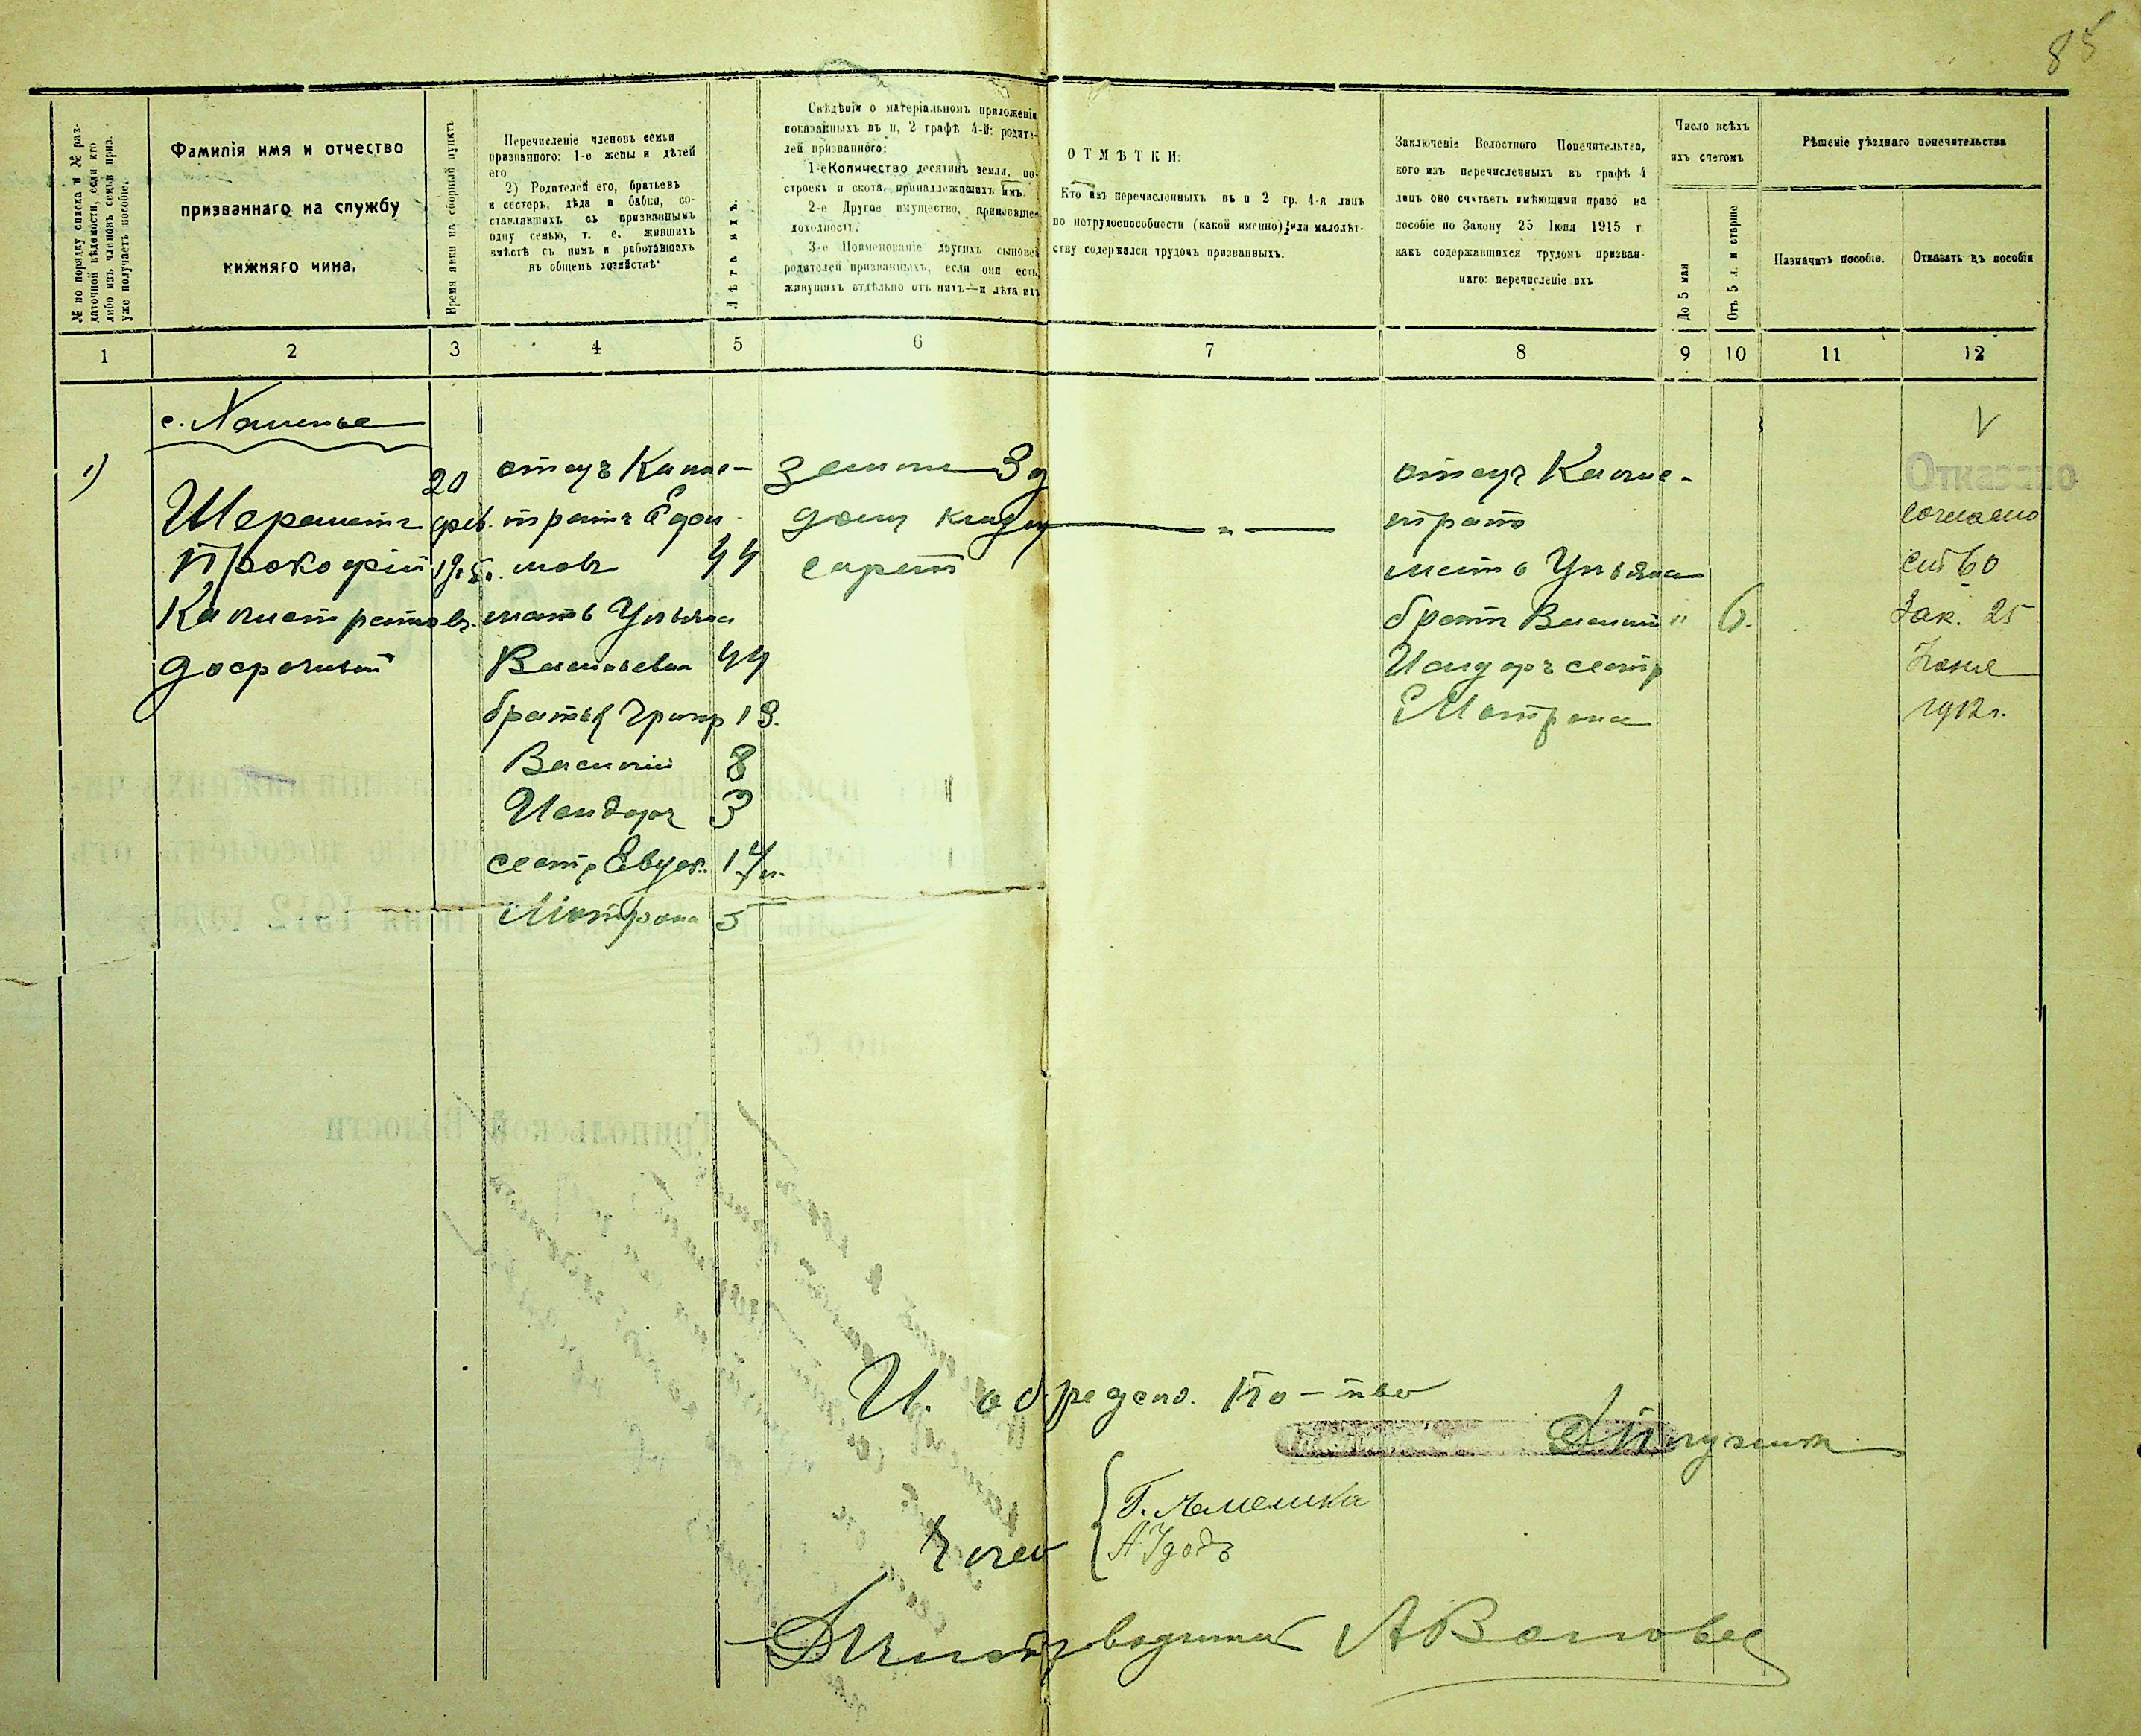 85
№ по порядку списка и № раз-
даточной вѣдомости, если кто
либо изъ членовъ семьи приз.
уже получаетъ пособіе.
Фамилія имя и отчество
призваннаго на службу
нижняго чина.
Время явки на сборный пунктъ
Перечисленіе членовъ семьи
призваннаго: 1-е жены и дѣтей
его
2) Родителей его, братьевъ
и сестеръ, дѣда и бабки, со-
ставлявшихъ съ призваннымъ
одну семью, т. е. жившихъ
вмѣстѣ съ нимъ и работавшахъ
въ общемъ хозяйствѣ
Лѣта ихъ.
Свѣдѣнія о матеріальномъ приложеніи
показанныхъ въ п, 2 графѣ 4-й: родите-
лей призваннаго:
1-е Количество десятинъ земли, по-
строекъ и скота, принадлежащихъ имъ.
2-е Другое имущество, приносящее
доходность.
3-е Поименованіе другихъ сыновей
родителей призванныхъ, если они есть,
живущихъ отдѣльно отъ нихъ—и лѣта ихъ
ОТМѢТКИ:
Кто изъ перечисленныхъ въ п 2 гр. 4-я лицъ
по нетрудоспособности (какой именно) или малолѣт-
ству содержался трудомъ призванныхъ.
Заключеніе Волостного Попечительтва,
кого изъ перечисленныхъ въ графѣ 4
лицъ оно считаетъ имѣющими право на
пособіе по Закону 25 Іюня 1915 г
какъ содержавшихся трудомъ призван-
наго: перечисленіе ихъ
Число всѣхъ
ихъ счетомъ
До 5 мая
Отъ 5 л. и старше
Рѣшеніе уѣзднаго попечительства
Назначить пособіе.
Отказать въ пособіи
1 2 3 4 5 6 7 8 9 10 11 12
1)
Шереметъ
Прокофій
Калистратовъ
досрочный
20
фев.
отецъ Кали-
стратъ Едои-
мовъ 44
мать Ульяна
Васильевна 44
братья Григор 13.
Василій 8
Исидоръ 3
сестр Евдок. 14
Мотрона 5
земли 3 д
домъ
отецъ Кали-
стратъ
мать Ульяна
братъ Василий "
Исидоръ сестр
Мотрона
6.
V
Отказано
согласно
Зак. 25
Іюня
1912 г.
И. о председ. По-тво
Г. Ямешка
А Удодъ